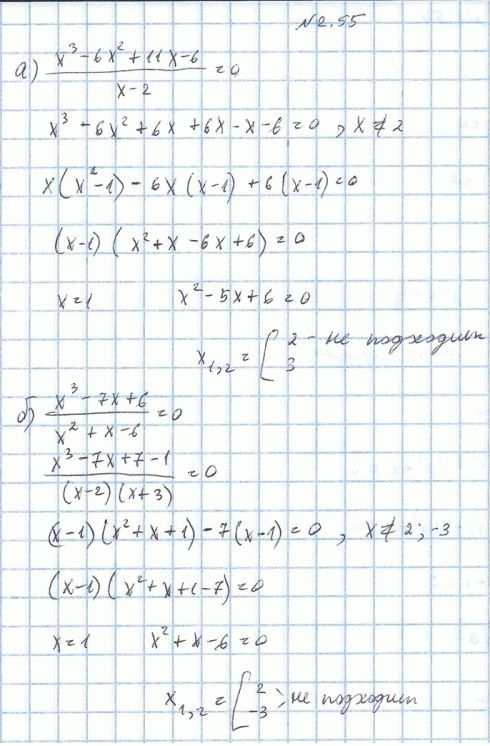 №2.55
а) (x³ - 6x² + 11x - 6)/(x - 2) = 0
x³ - 6x² + 6x + 6x - x - 6 = 0 , x ≠ 2
x(x² - 1) - 6x(x - 1) + 6(x - 1) = 0
(x - 1)(x² + x - 6x + 6) = 0
x = 1 x² - 5x + 6 = 0
x₁,₂ = [ 2 - не подходит
3
б) (x³ - 7x + 6)/(x² + x - 6) = 0
(x³ - 7x + 7 - 1)/((x - 2)(x + 3)) = 0
(x - 1)(x² + x + 1) - 7(x - 1) = 0 , x ≠ 2; -3
(x - 1)(x² + x + 1 - 7) = 0
x = 1 x² + x - 6 = 0
x₁,₂ = [ 2 ; не подходит
-3